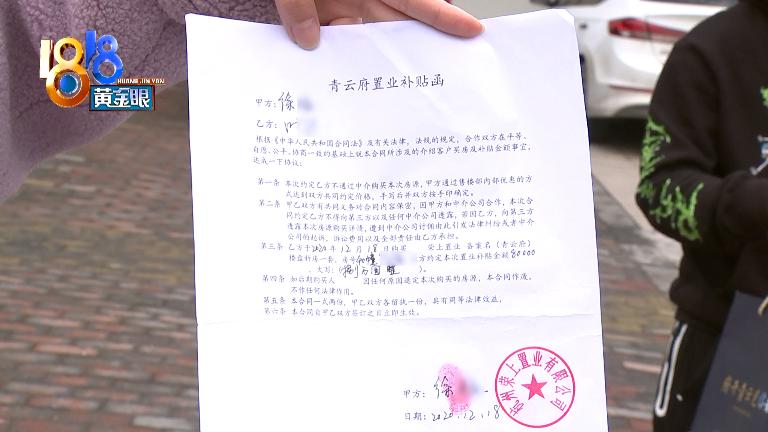 1818
HUANG JIN YAN
黄金眼
青云府置业补贴函
甲方：徐
乙方：
根据《中华人民共和国合同法》及有关法律，法规的规定，合作双方在平等、
自愿、公平、协商一致的基础上就本合同所涉及的介绍客户买房及补贴金额事宜，
达成一下协议：
第一条 本次约定乙方不通过中介购买本次房源，甲方通过售楼部内部优惠的方
式达到双方共同约定价格，手写后并双方按手印确定。
第二条 甲乙双方有共同义务对合同内容保密，因甲方和中介公司合作，本次合
同约定乙方不得向第三方以及任何中介公司透露，若因乙方，向第三方
透露本次房源购买详情，遭到中介公司讨佣由此引发法律纠纷或者中介
公司的起诉，诉讼费用以及全部责任由乙方承担。
第三条 乙方于2020年12月18日购买 荣上置业 备案名（青云府）
楼盘新房一套，房号 方约定本次置业补贴金额80000
，大写：（捌万圆整）。
第四条 如后期购买人 因任何原因退定本次购买的房源，本合同作废，
不作任何法律作用。
第五条 本合同一式两份，甲乙双方各留执一份，具有同等法律效益。
第六条 本合同自甲乙双方签订之日立即生效。
甲方：徐
日期：2020.12.18
杭州荣上置业有限公司